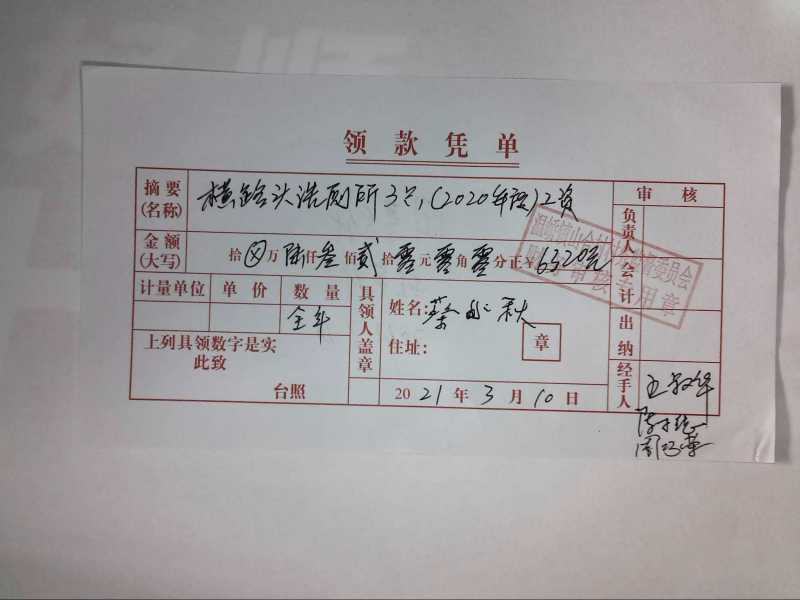 领款凭单
摘要(名称) 横路头洗厕所3只,(2020年度)工资
审核
金额(大写) 拾⊗万陆仟叁佰贰拾零元零角零分正¥6320元
负责人
计量单位 单价 数量
全年
会计
具领人盖章
姓名:蔡 秋
住址:
章
出纳
上列具领数字是实
此致
台照
2021年3月10日
经手人
审核专用章